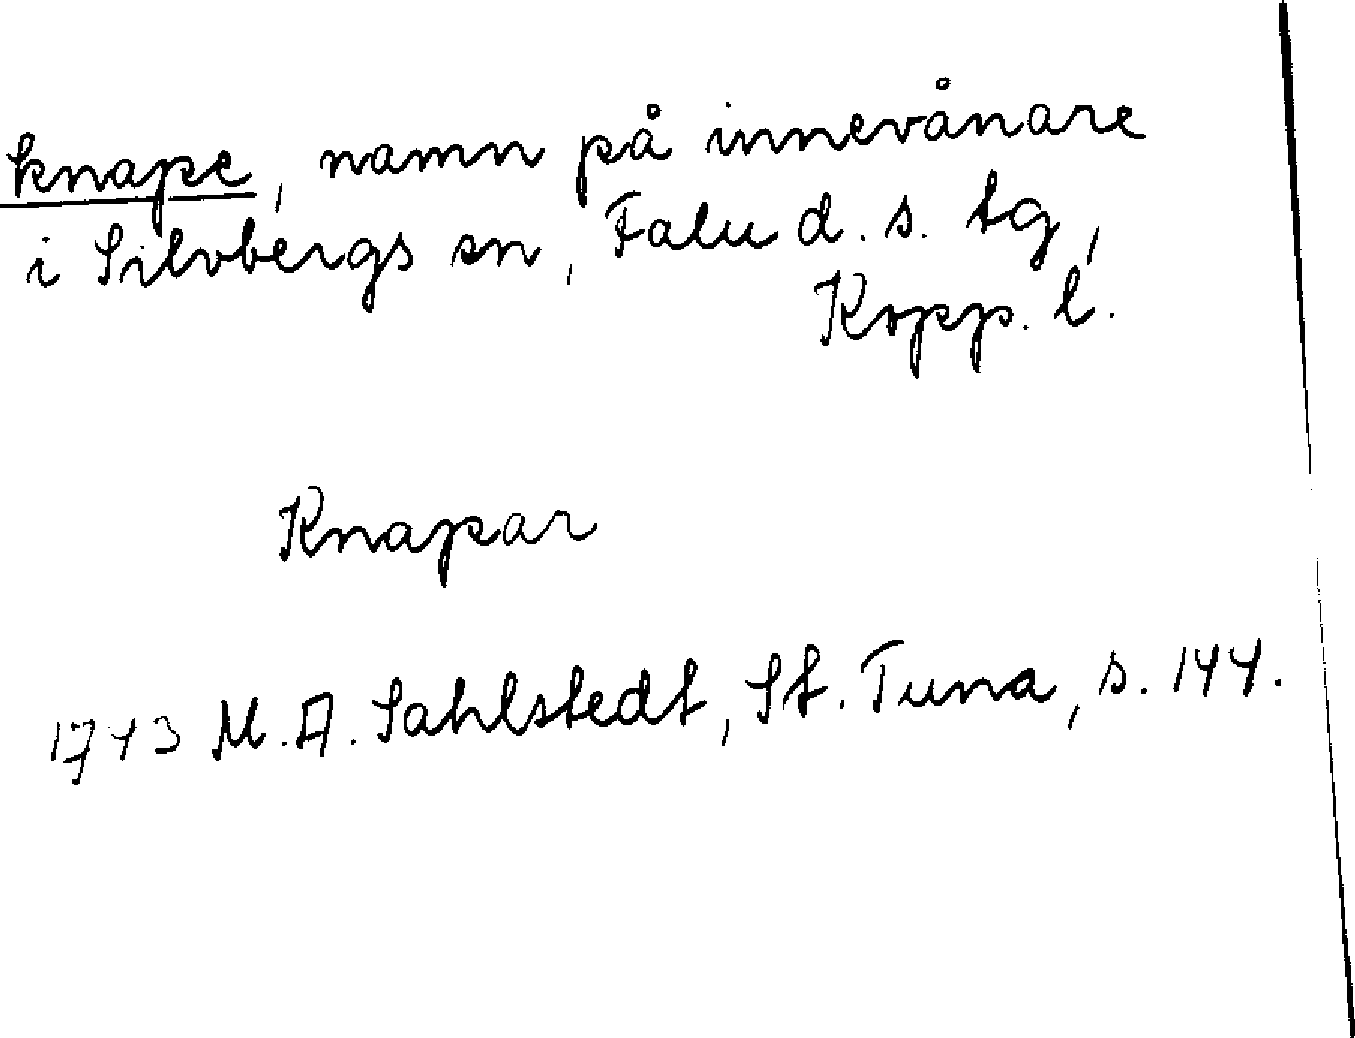 knape, namn på innevånare
i Silvbergs sn, Falu d. s. tg,
Kopp. l.
Knapar
1743 M. A. Sahlstedt, St. Tuna, s. 144.